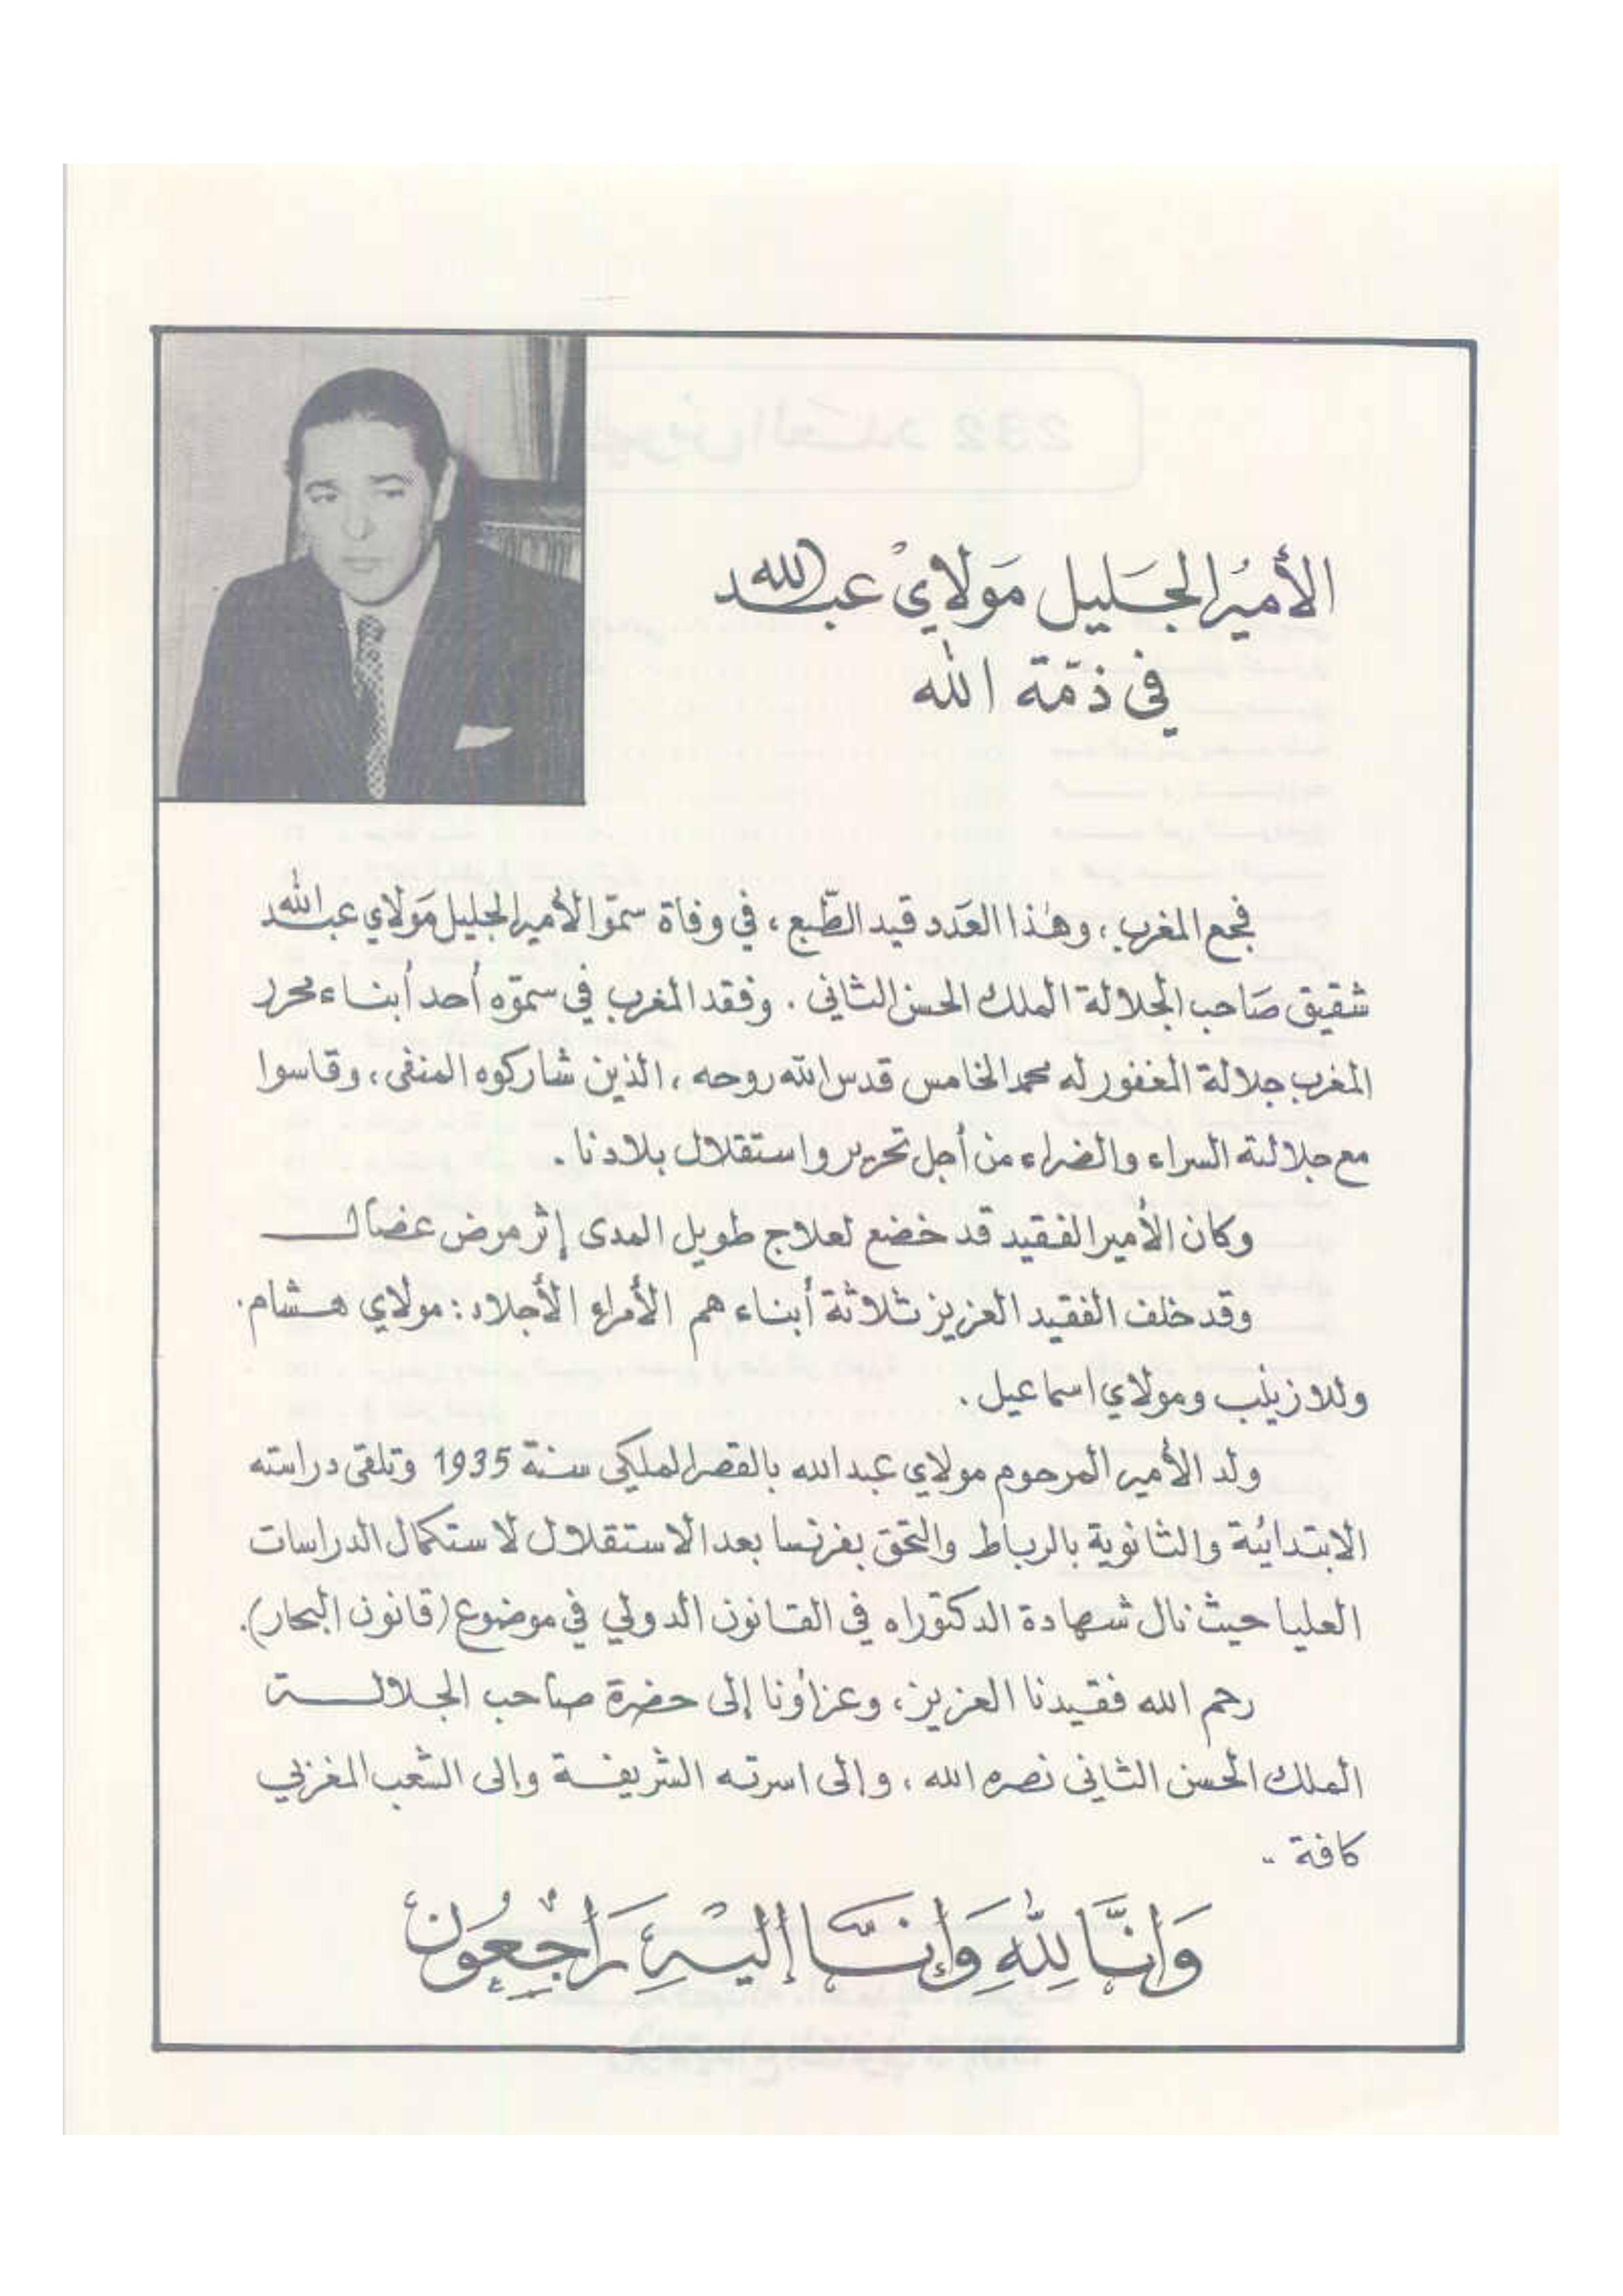 الأميرُ الجَليل مَولايْ عبد الله
في ذمّة الله
فجع المغرب ، وهٰذا العَدد قيد الطّبع ، في وفاة سمّو الأمير الجليل مَولاي عبد الله
شقيق صَاحب الجلالة الملك الحسن الثاني . وفقد المغرب في سموّه أحد أبناء محرر
المغرب جلالة المغفور له محمد الخامس قدس الله روحه ، الذين شاركوه المنفى ، وقاسوا
مع جلالته السراء والضراء من أجل تحرير واستقلال بلادنا .
وكان الأمير الفقيد قد خضع لعلاج طويل المدى إثر مرض عضال
وقد خلف الفقيد العزيز ثلاثة أبناء هم الأمراء الأجلاء : مولاي هشام .
وللا زينب ومولاي اسماعيل .
ولد الأمير المرحوم مولاي عبد الله بالقصر الملكي سنة 1935 وتلقى دراسته
الابتدائية والثانوية بالرباط والتحق بفرنسا بعد الاستقلال لاستكمال الدراسات
العليا حيث نال شهادة الدكتوراه في القانون الدولي في موضوع (قانون البحار).
رحم الله فقيدنا العزيز، وعزاؤنا إلى حضرة صاحب الجلالة
الملك الحسن الثاني نصره الله ، وإلى اسرته الشريفة وإلى الشعب المغربي
كافة -
وَإنَّا لِلّٰهِ وَإنَّا إلَيْهِ رَاجِعُون